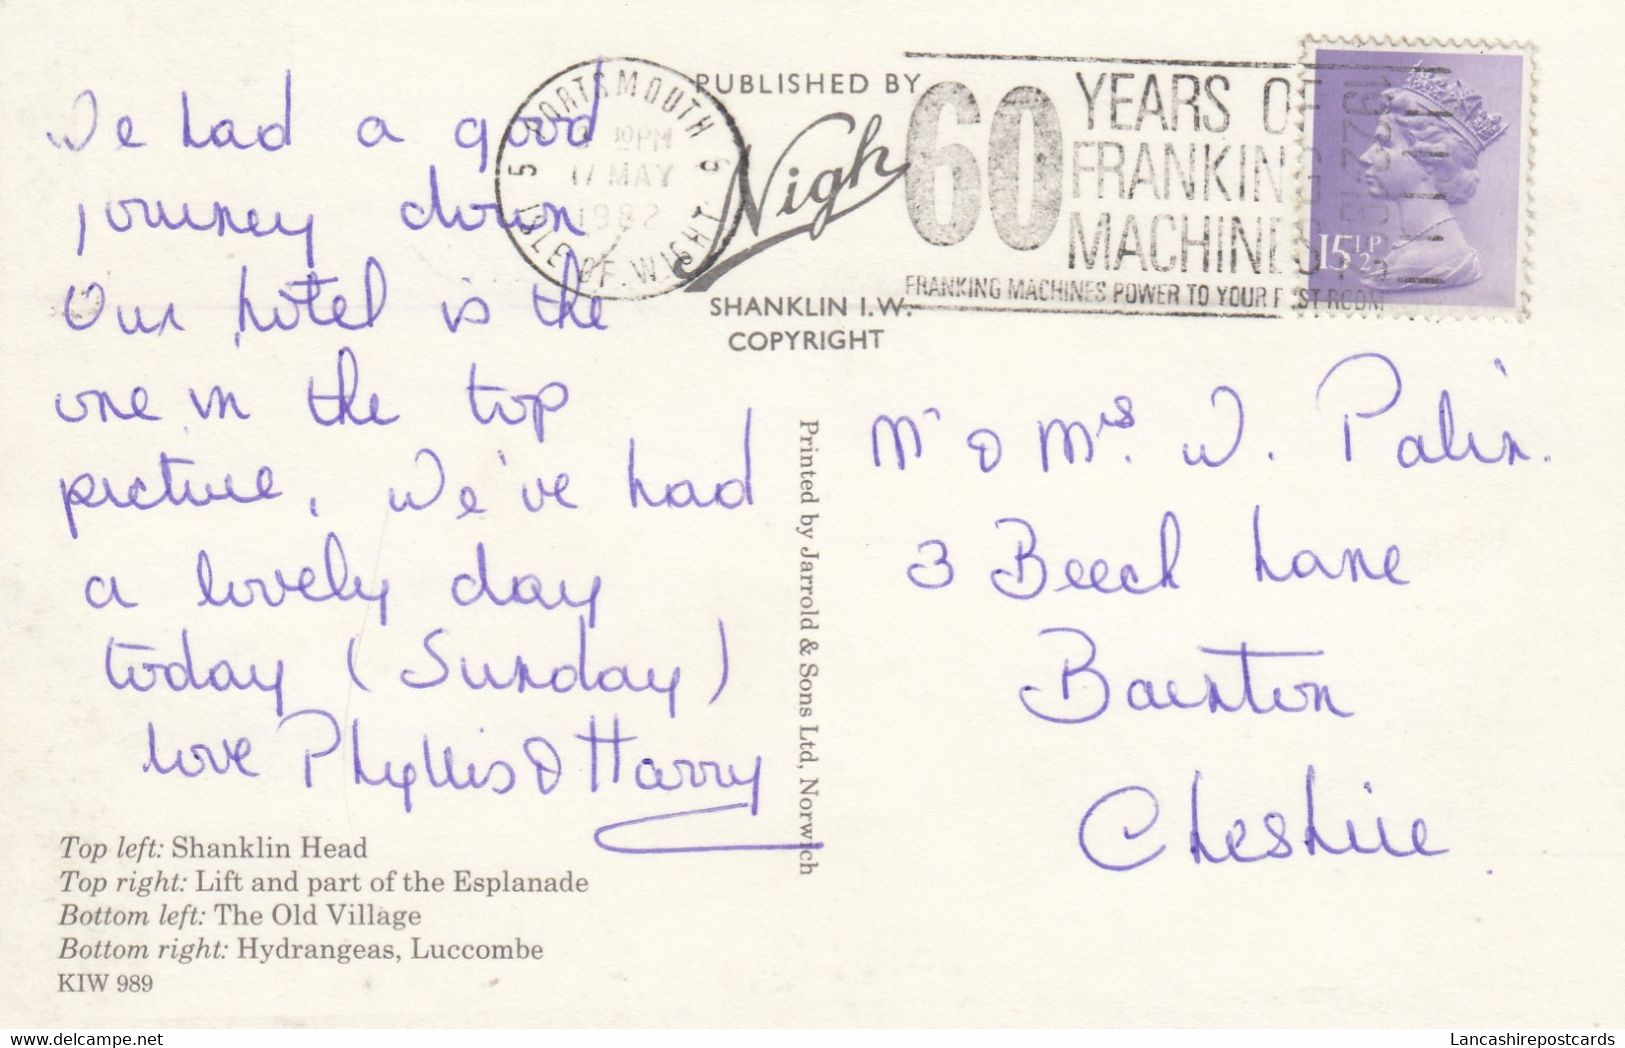 We had a good
journey down
Our hotel is the
one in the top
picture. We've had
a lovely day
today (Sunday)
love Phyllis & Harry
Top left: Shanklin Head
Top right: Lift and part of the Esplanade
Bottom left: The Old Village
Bottom right: Hydrangeas, Luccombe
KIW 989
PORTSMOUTH
PM
17 MAY
1982
ISLE OF WIGHT
PUBLISHED BY
Nigh
SHANKLIN I.W.
COPYRIGHT
Printed by Jarrold & Sons Ltd, Norwich
60 YEARS OF
FRANKING
MACHINES
FRANKING MACHINES POWER TO YOUR POST ROOM
1922-1982
15½P
Mr & Mrs. W. Palin.
3 Beech Lane
Barnton
Cheshire.
Lancashirepostcards